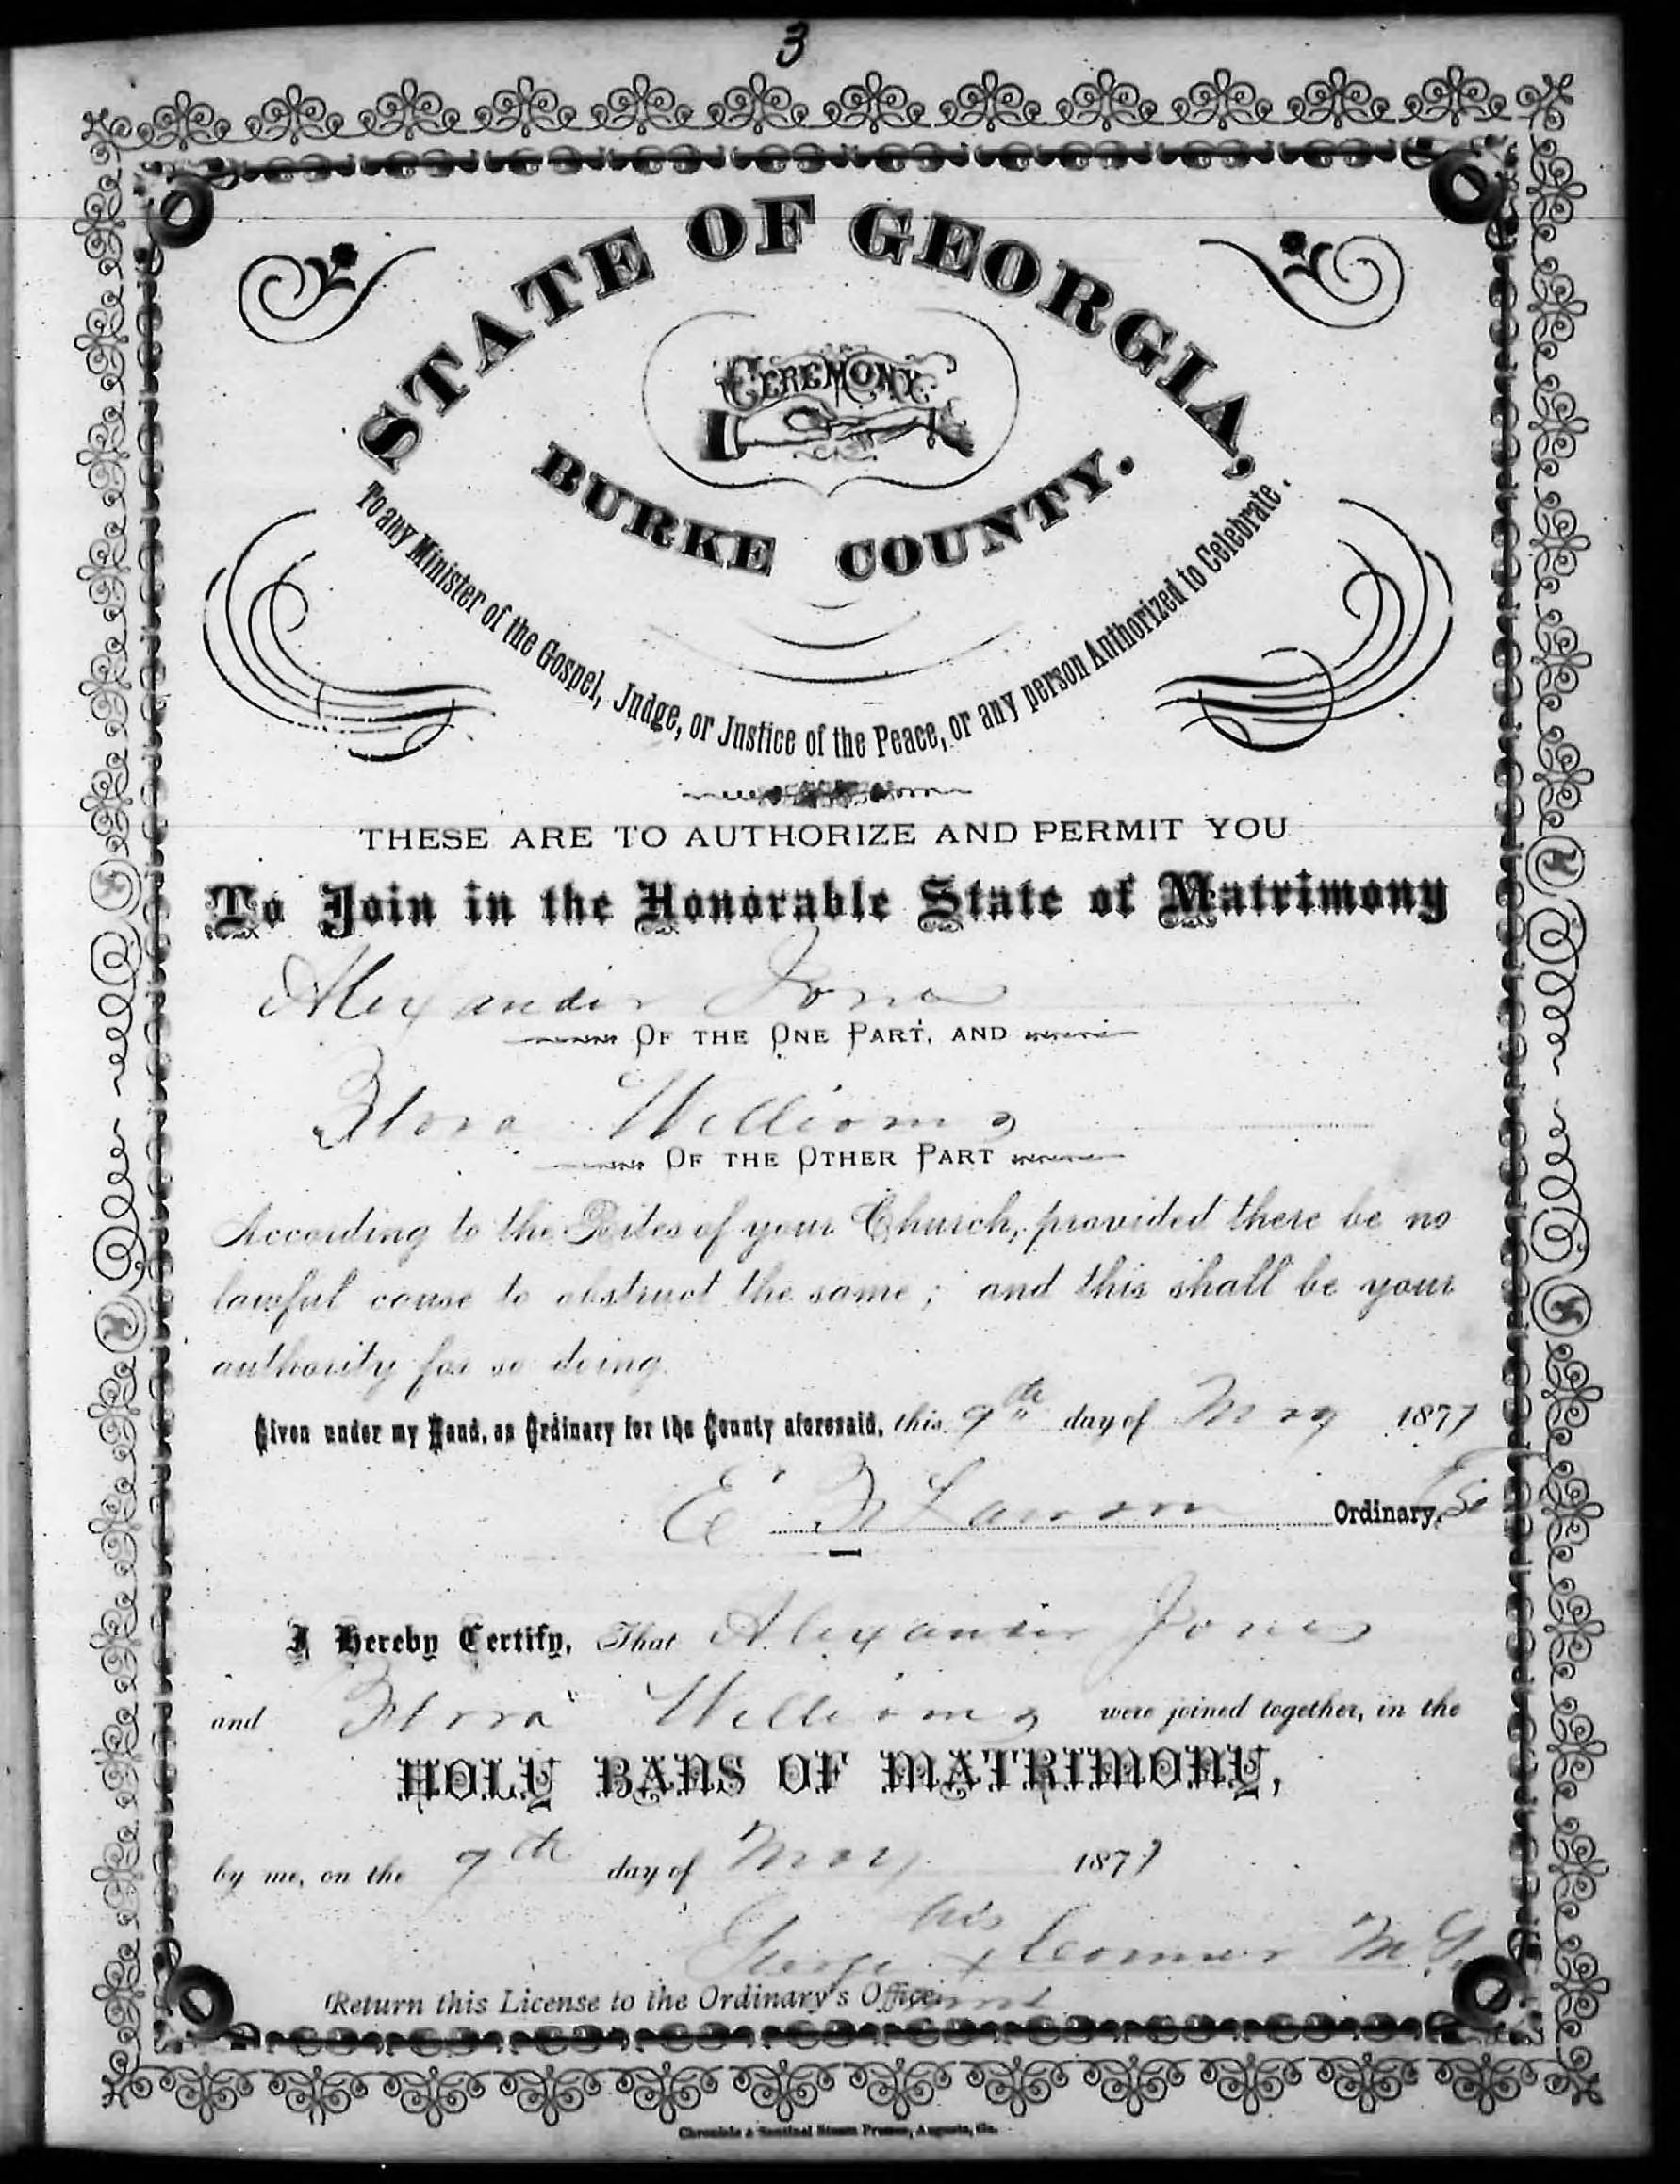 3
STATE OF GEORGIA,
CEREMONY
BURKE COUNTY.
To any Minister of the Gospel, Judge, or Justice of the Peace, or any person Authorized to Celebrate.
THESE ARE TO AUTHORIZE AND PERMIT YOU
To Join in the Honorable State of Matrimony
Alexander Jones
OF THE ONE PART, AND
Flora Williams
OF THE OTHER PART
According to the Rites of your Church, provided there be no
lawful cause to obstruct the same; and this shall be your
authority for so doing.
Given under my Hand, as Ordinary for the County aforesaid, this 9th day of May 1877
E F Lawson Ordinary,
I Hereby Certify, That Alexander Jones
and Flora Williams were joined together, in the
HOLY BANS OF MATRIMONY,
by me, on the 9th day of May 1877
his
George x Conner M.G.
Return this License to the Ordinary's Office
Chronicle & Sentinel Steam Presses, Augusta, Ga.